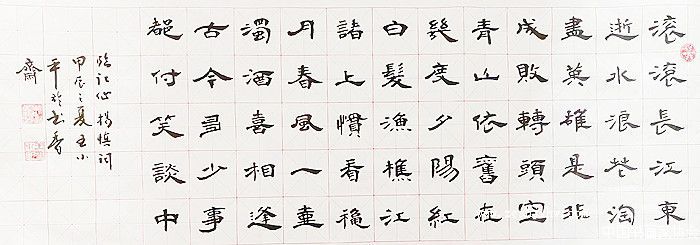 滾滾長江東
逝水浪花淘
盡英雄是非
成敗轉頭空
青山依舊在
幾度夕陽紅
白髮漁樵江
諸上慣看穐
月春風一壺
濁酒喜相逢
古今多少事
都付笑談中
臨江仙楊慎詞
甲辰之夏王小
平於書香
齋